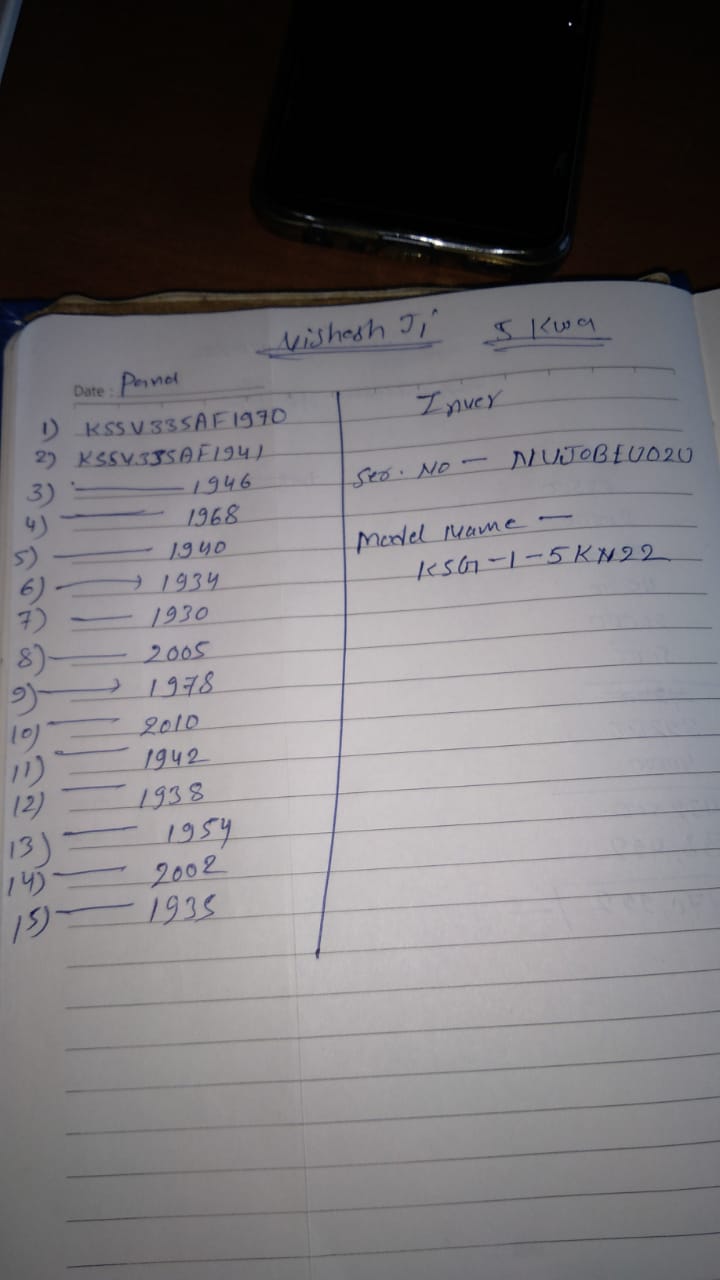 Vishesh Ji 5 Kwa
Date : Panel
1) KSSV335AF1970
2) KSSV335AF1941
3) ——— 1946
4) ——— 1968
5) ——— 1940
6) ——→ 1934
7) —— 1930
8) —— 2005
9) ——→ 1978
10) —— 2010
11) —— 1942
12) —— 1938
13) —— 1954
14) —— 2002
15) —— 1935
Inver
Ser. No — NUJOBEU020
Model Name —
KSG-1-5KN22